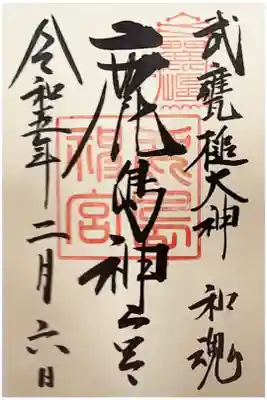 武甕槌大神
和魂
鹿島神宮
鹿島神宮
令和五年二月六日